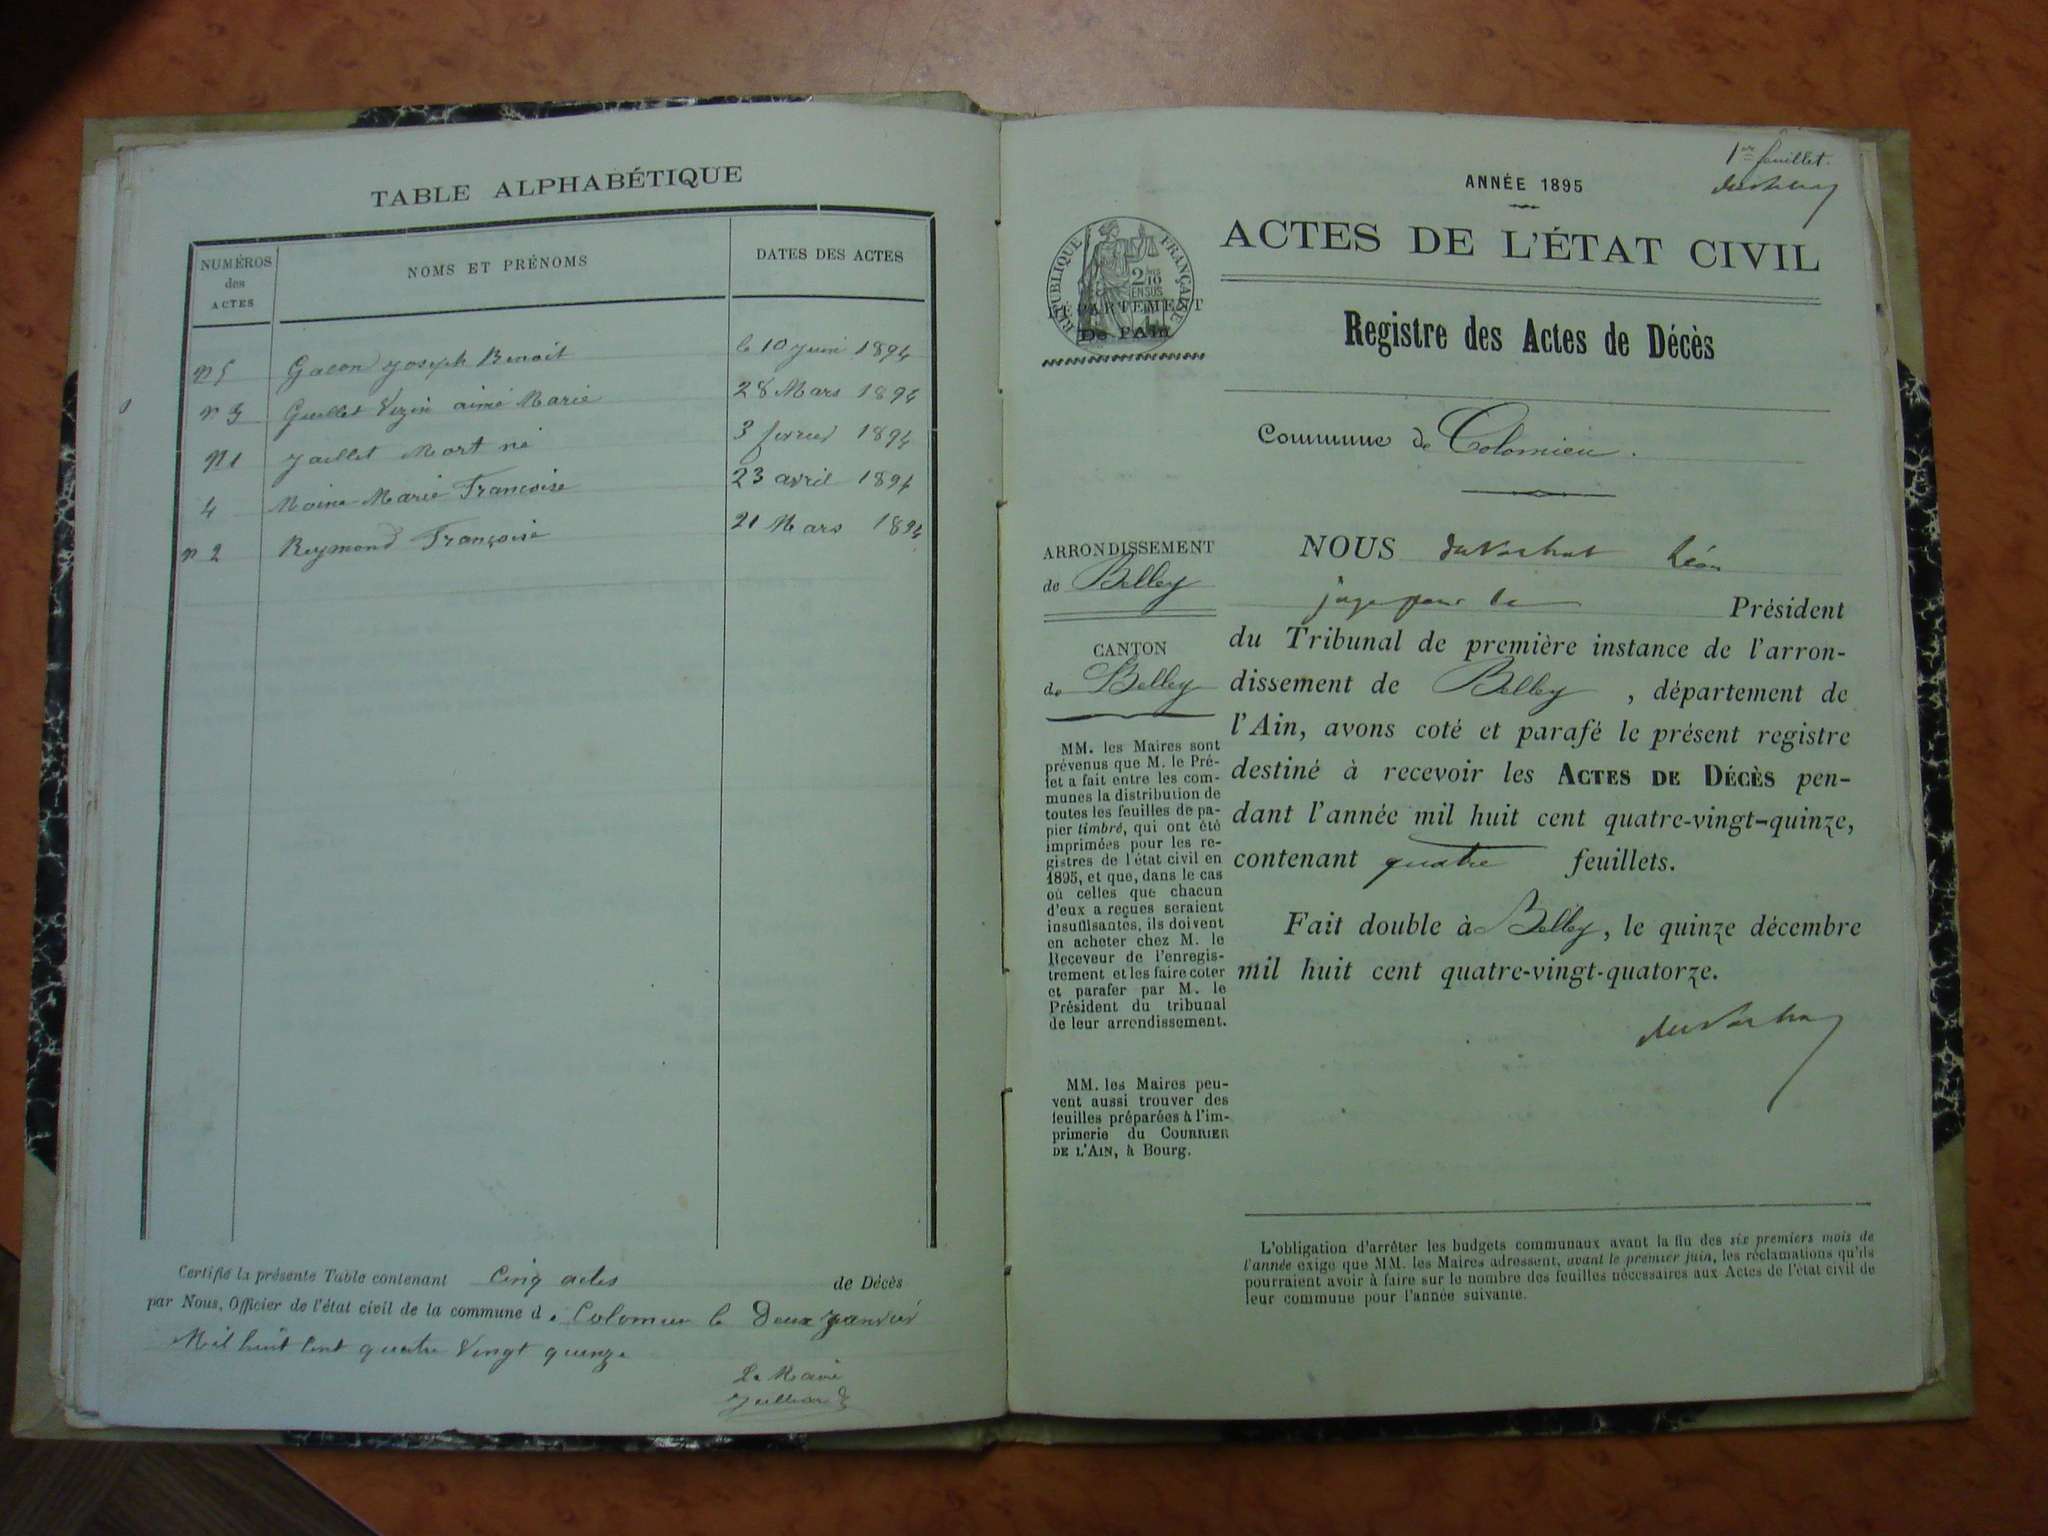 TABLE ALPHABÉTIQUE
NUMÉROS
des
ACTES
NOMS ET PRÉNOMS
DATES DES ACTES
n 5 Gacon Joseph Benoit le 10 juin 1894
n 3 Guillet Vezin aimé Marie 28 Mars 1894
n 1 Jaillet Mort né 3 fevrier 1894
4 Moine Marie Françoise 23 avril 1894
n 2 Reymond Françoise 21 Mars 1894
Certifié la présente Table contenant Cinq actes de Décès
par Nous, Officier de l'état civil de la commune de Colomieu le Deux janvier
Mil huit Cent quatre Vingt quinze
Le Maire
1er feuillet.
ANNÉE 1895
ACTES DE L'ÉTAT CIVIL
RÉPUBLIQUE FRANÇAISE
2/10
EN SUS
DÉPARTEMENT
De l'Ain
Registre des Actes de Décès
Commune de Colomieu.
ARRONDISSEMENT
de Belley
CANTON
de Belley
MM. les Maires sont
prévenus que M. le Pré-
fet a fait entre les com-
munes la distribution de
toutes les feuilles de pa-
pier timbré, qui ont été
imprimées pour les re-
gistres de l'état civil en
1895, et que, dans le cas
où celles que chacun
d'eux a reçues seraient
insuffisantes, ils doivent
en acheter chez M. le
Receveur de l'enregis-
trement et les faire coter
et parafer par M. le
Président du tribunal
de leur arrondissement.
MM. les Maires peu-
vent aussi trouver des
feuilles préparées à l'im-
primerie du COURRIER
DE L'AIN, à Bourg.
NOUS Léon
juge pour le Président
du Tribunal de première instance de l'arron-
dissement de Belley, département de
l'Ain, avons coté et parafé le présent registre
destiné à recevoir les ACTES DE DÉCÈS pen-
dant l'année mil huit cent quatre-vingt-quinze,
contenant quatre feuillets.
Fait double à Belley, le quinze décembre
mil huit cent quatre-vingt-quatorze.
L'obligation d'arrêter les budgets communaux avant la fin des six premiers mois de
l'année exige que MM. les Maires adressent, avant le premier juin, les réclamations qu'ils
pourraient avoir à faire sur le nombre des feuilles nécessaires aux Actes de l'état civil de
leur commune pour l'année suivante.